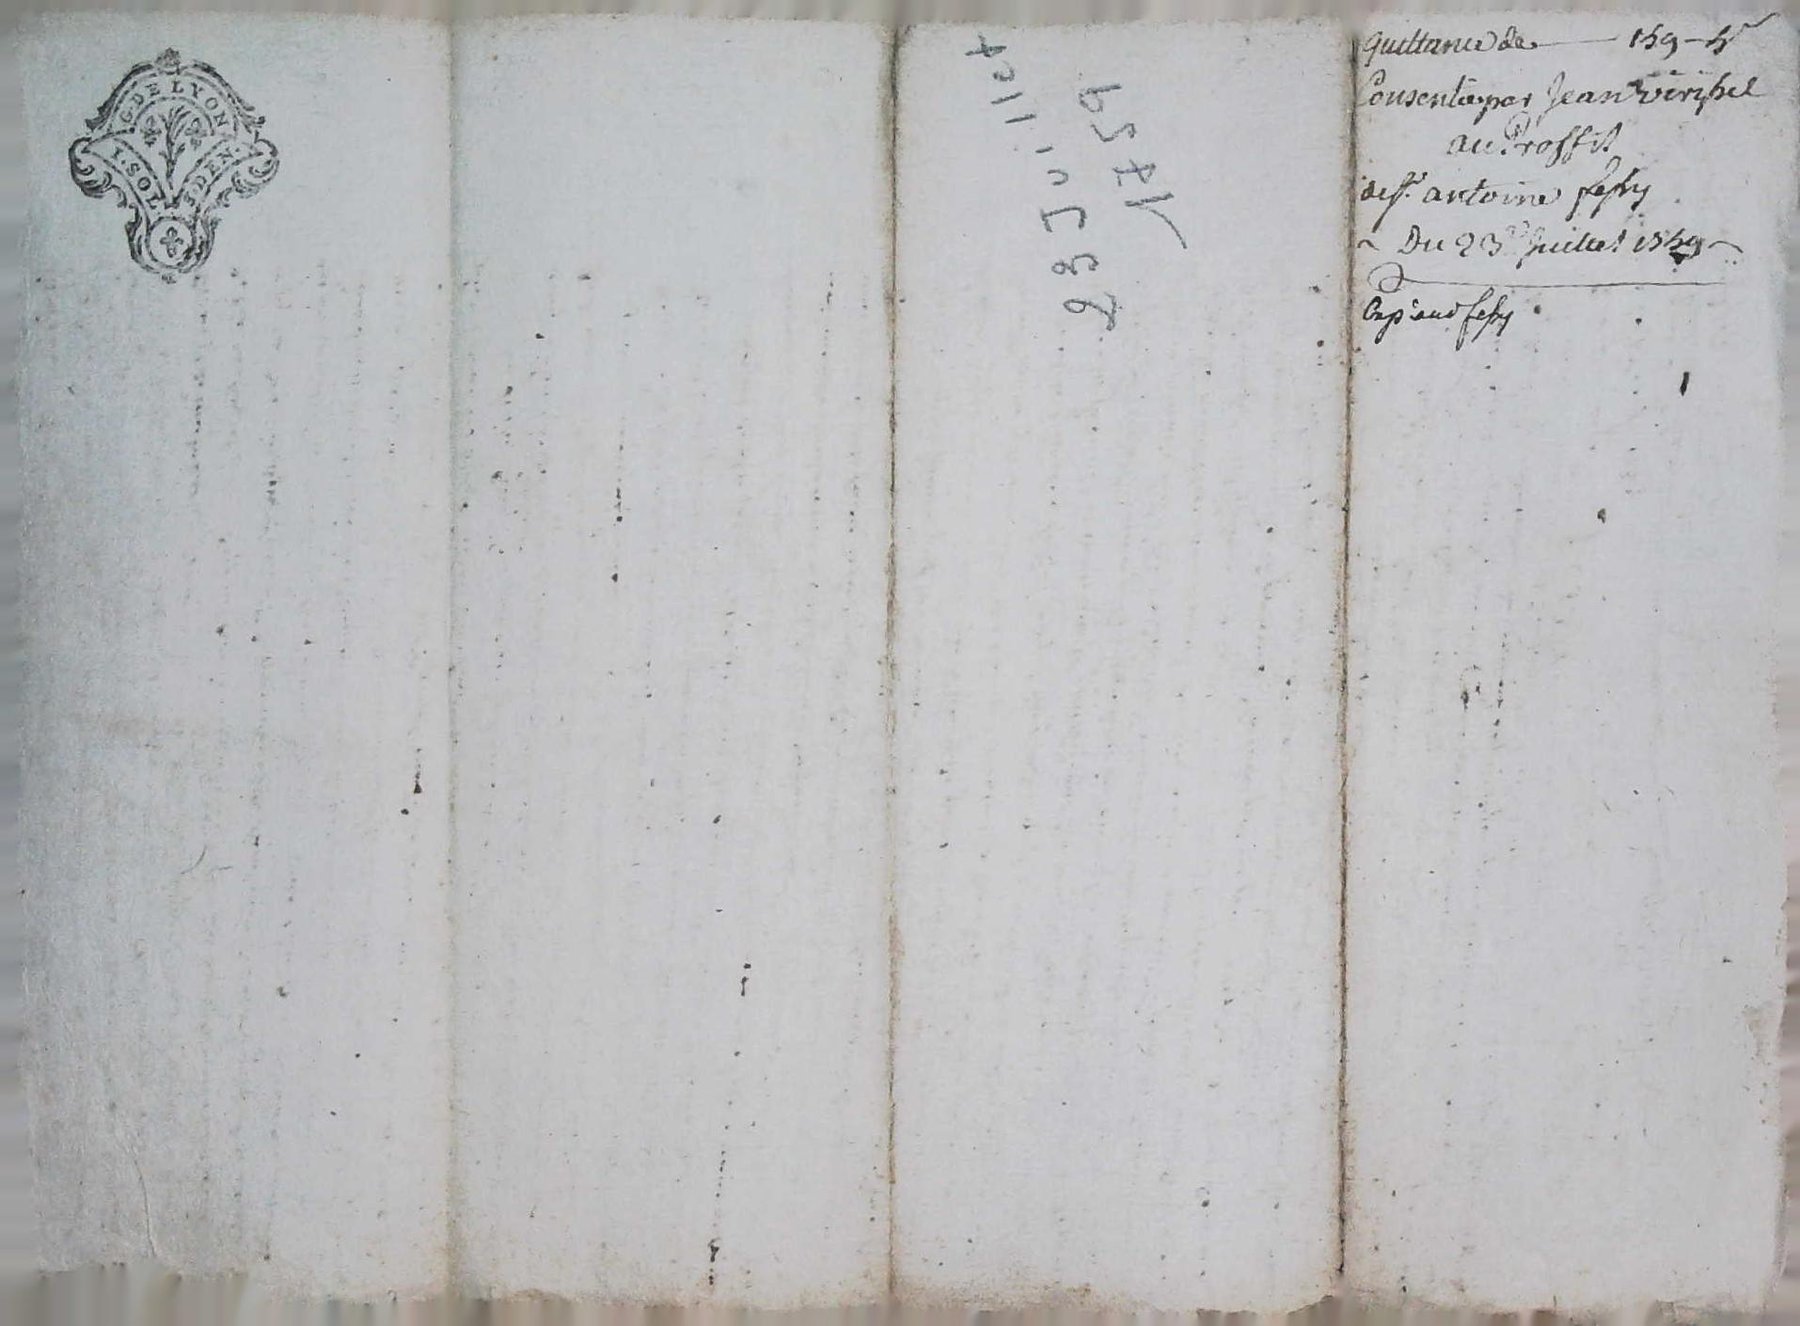 G. DE LYON
1. SOL 5. DEN.
23 Juillet
1759
quittance de 159 - 5
Consentie par Jean
au Proffit
de sr. antoine fessy
Du 23e Juillet 1759
fessy